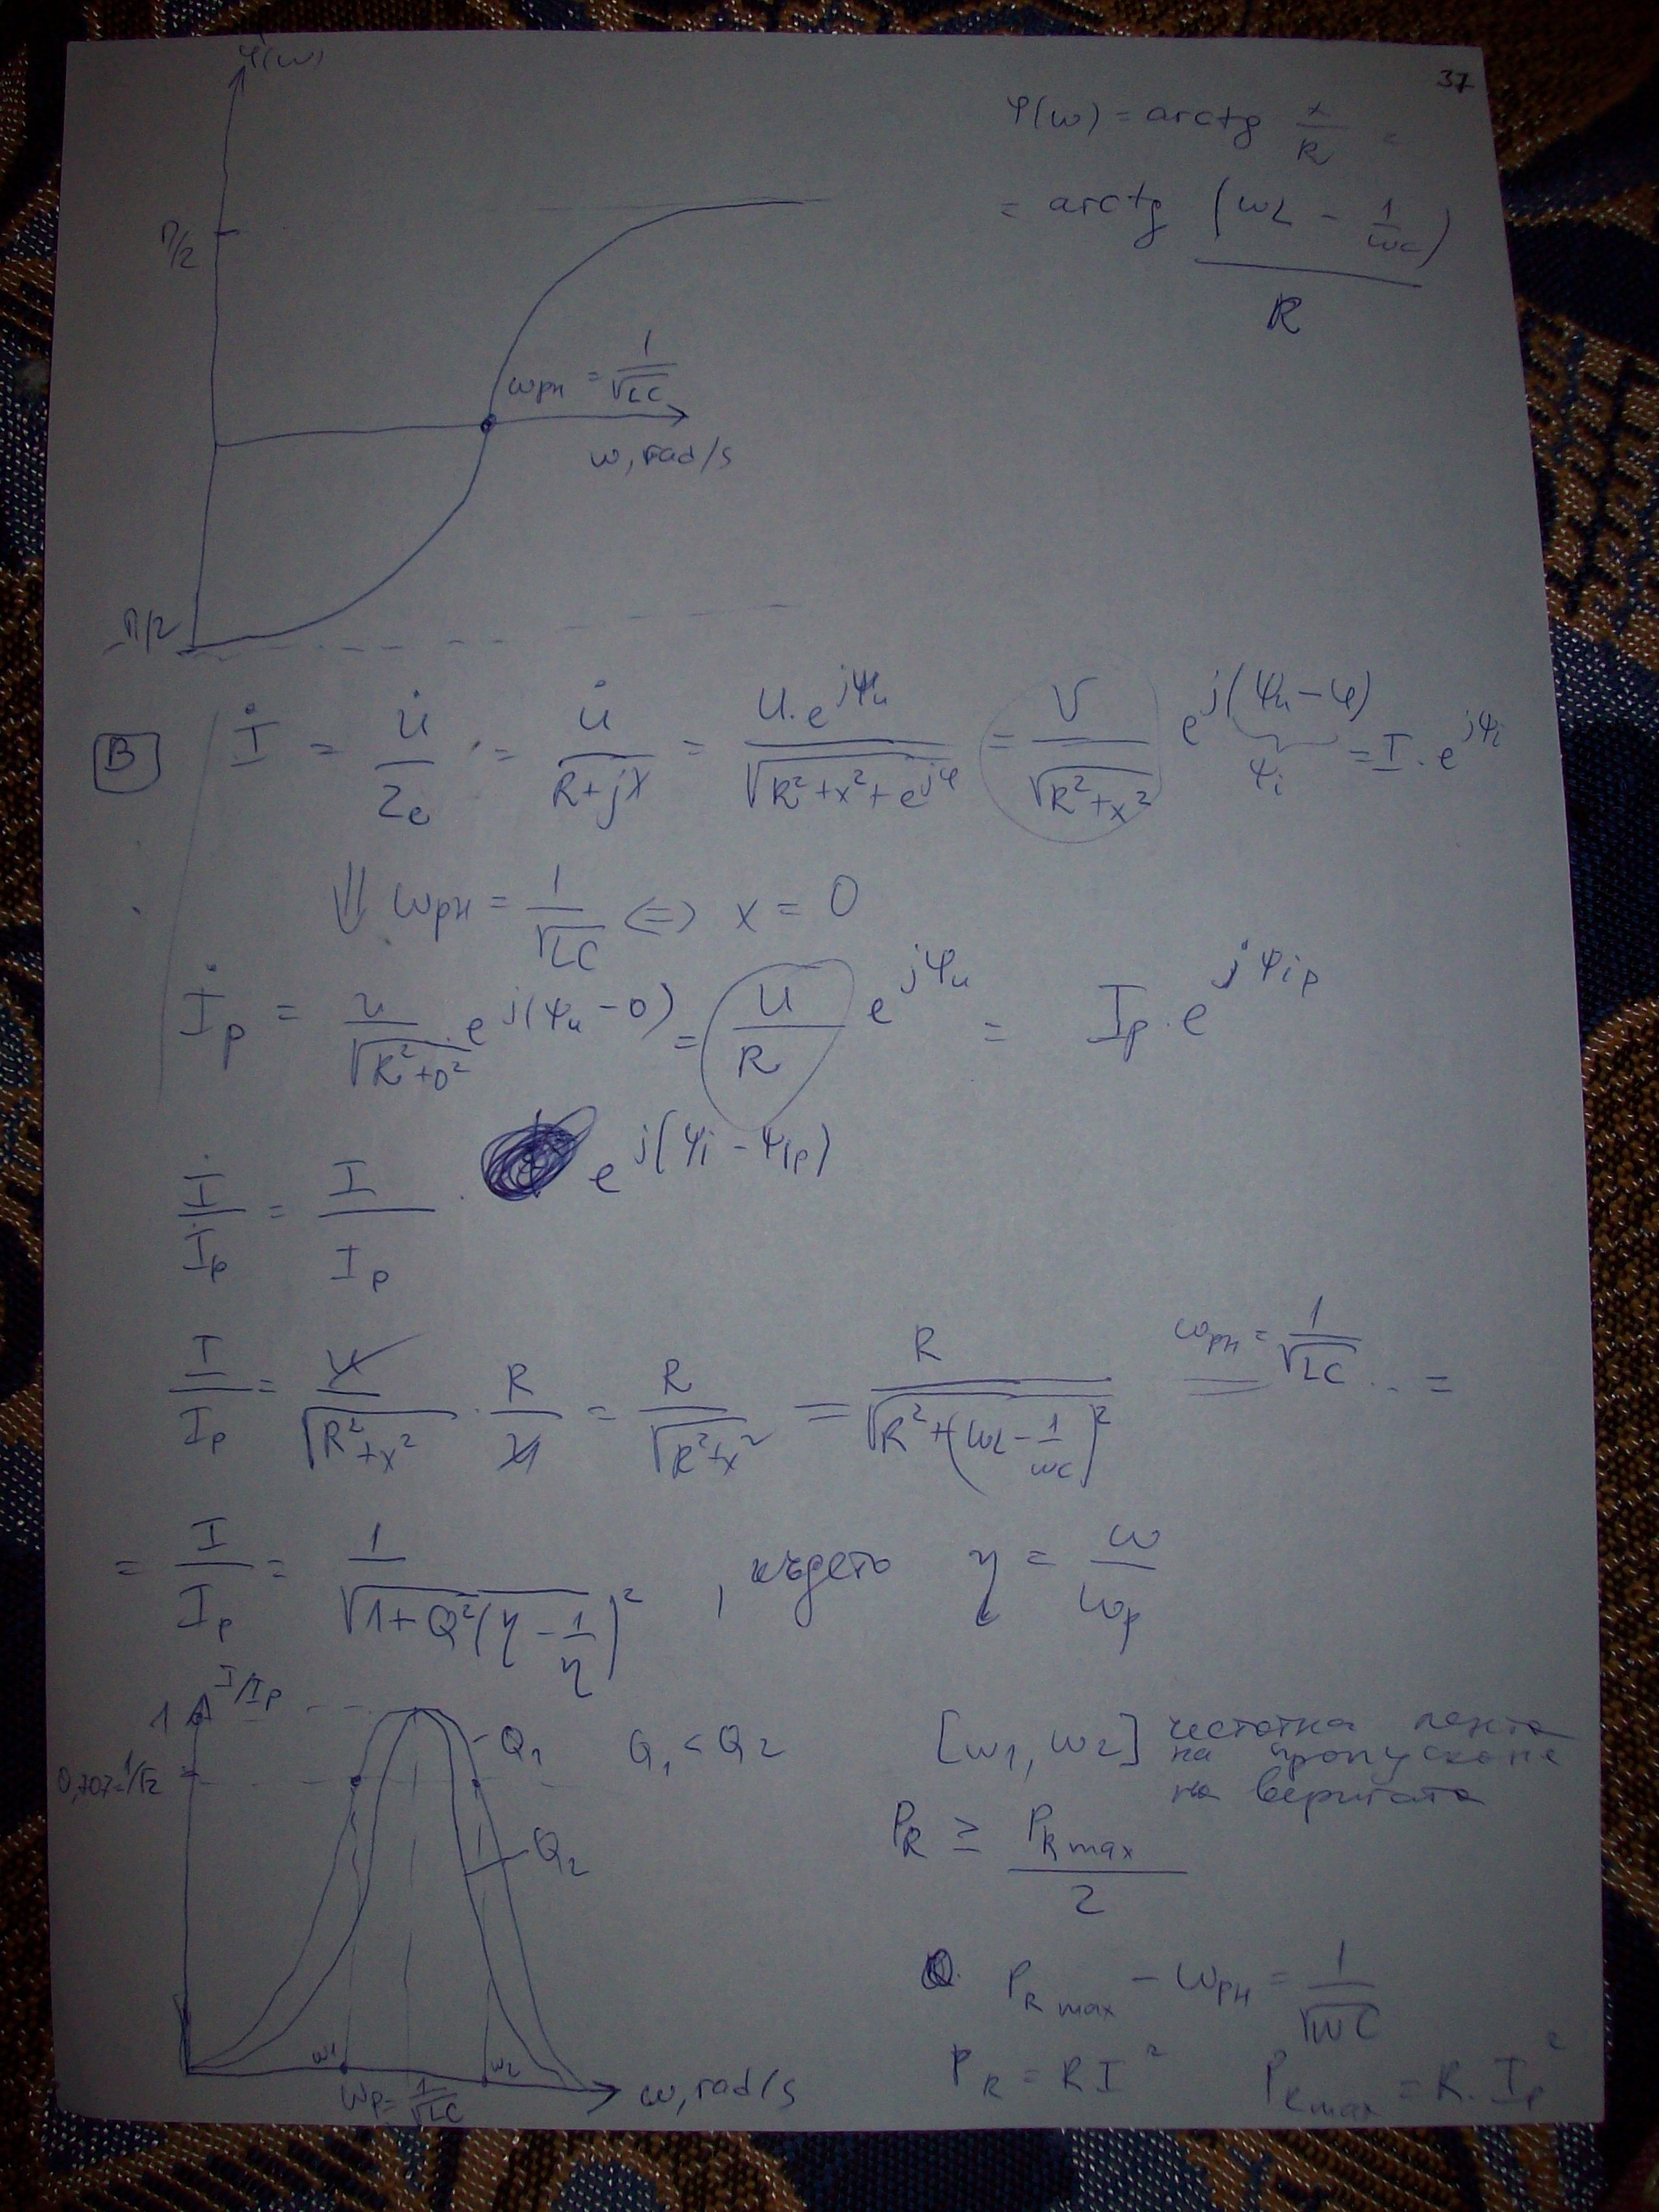 37
φ(ω)
φ(ω) = arctg x/R =
= arctg (ωL - 1/ωC)/R
π/2
ωрн = 1/√LC
ω, rad/s
-π/2
B
İ = U̇/Ze = U̇/(R+jX) = U.e^jψu/√(R²+x²+e^jφ) = U/√(R²+x²) e^j(ψu-φ) = I.e^jψi
ψi
⇓ ωрн = 1/√LC ⇔ x = 0
İр = U/√(R²+0²) . e^j(ψu-0) = U/R e^jψu = Iр.e^jψiр
İ/İр = I/Iр . e^j(ψi-ψiр)
I/Iр = U/√(R²+x²) . R/U = R/√(R²+x²) = R/√(R²+(ωL-1/ωC)²) = ωрн = 1/√LC .. =
= I/Iр = 1/√(1+Q²(η-1/η)²) , където η = ω/ωр
I/Iр
1
0,707=1/√2
Q1 Q1 < Q2
Q2
ω1 ω2
ωр = 1/√LC
ω, rad/s
[ω1, ω2] честотна лента
на пропускане
на веригата
PR ≥ PRmax/2
PRmax - ωрн = 1/√ωC
PR = RI² PRmax = R.Iр²